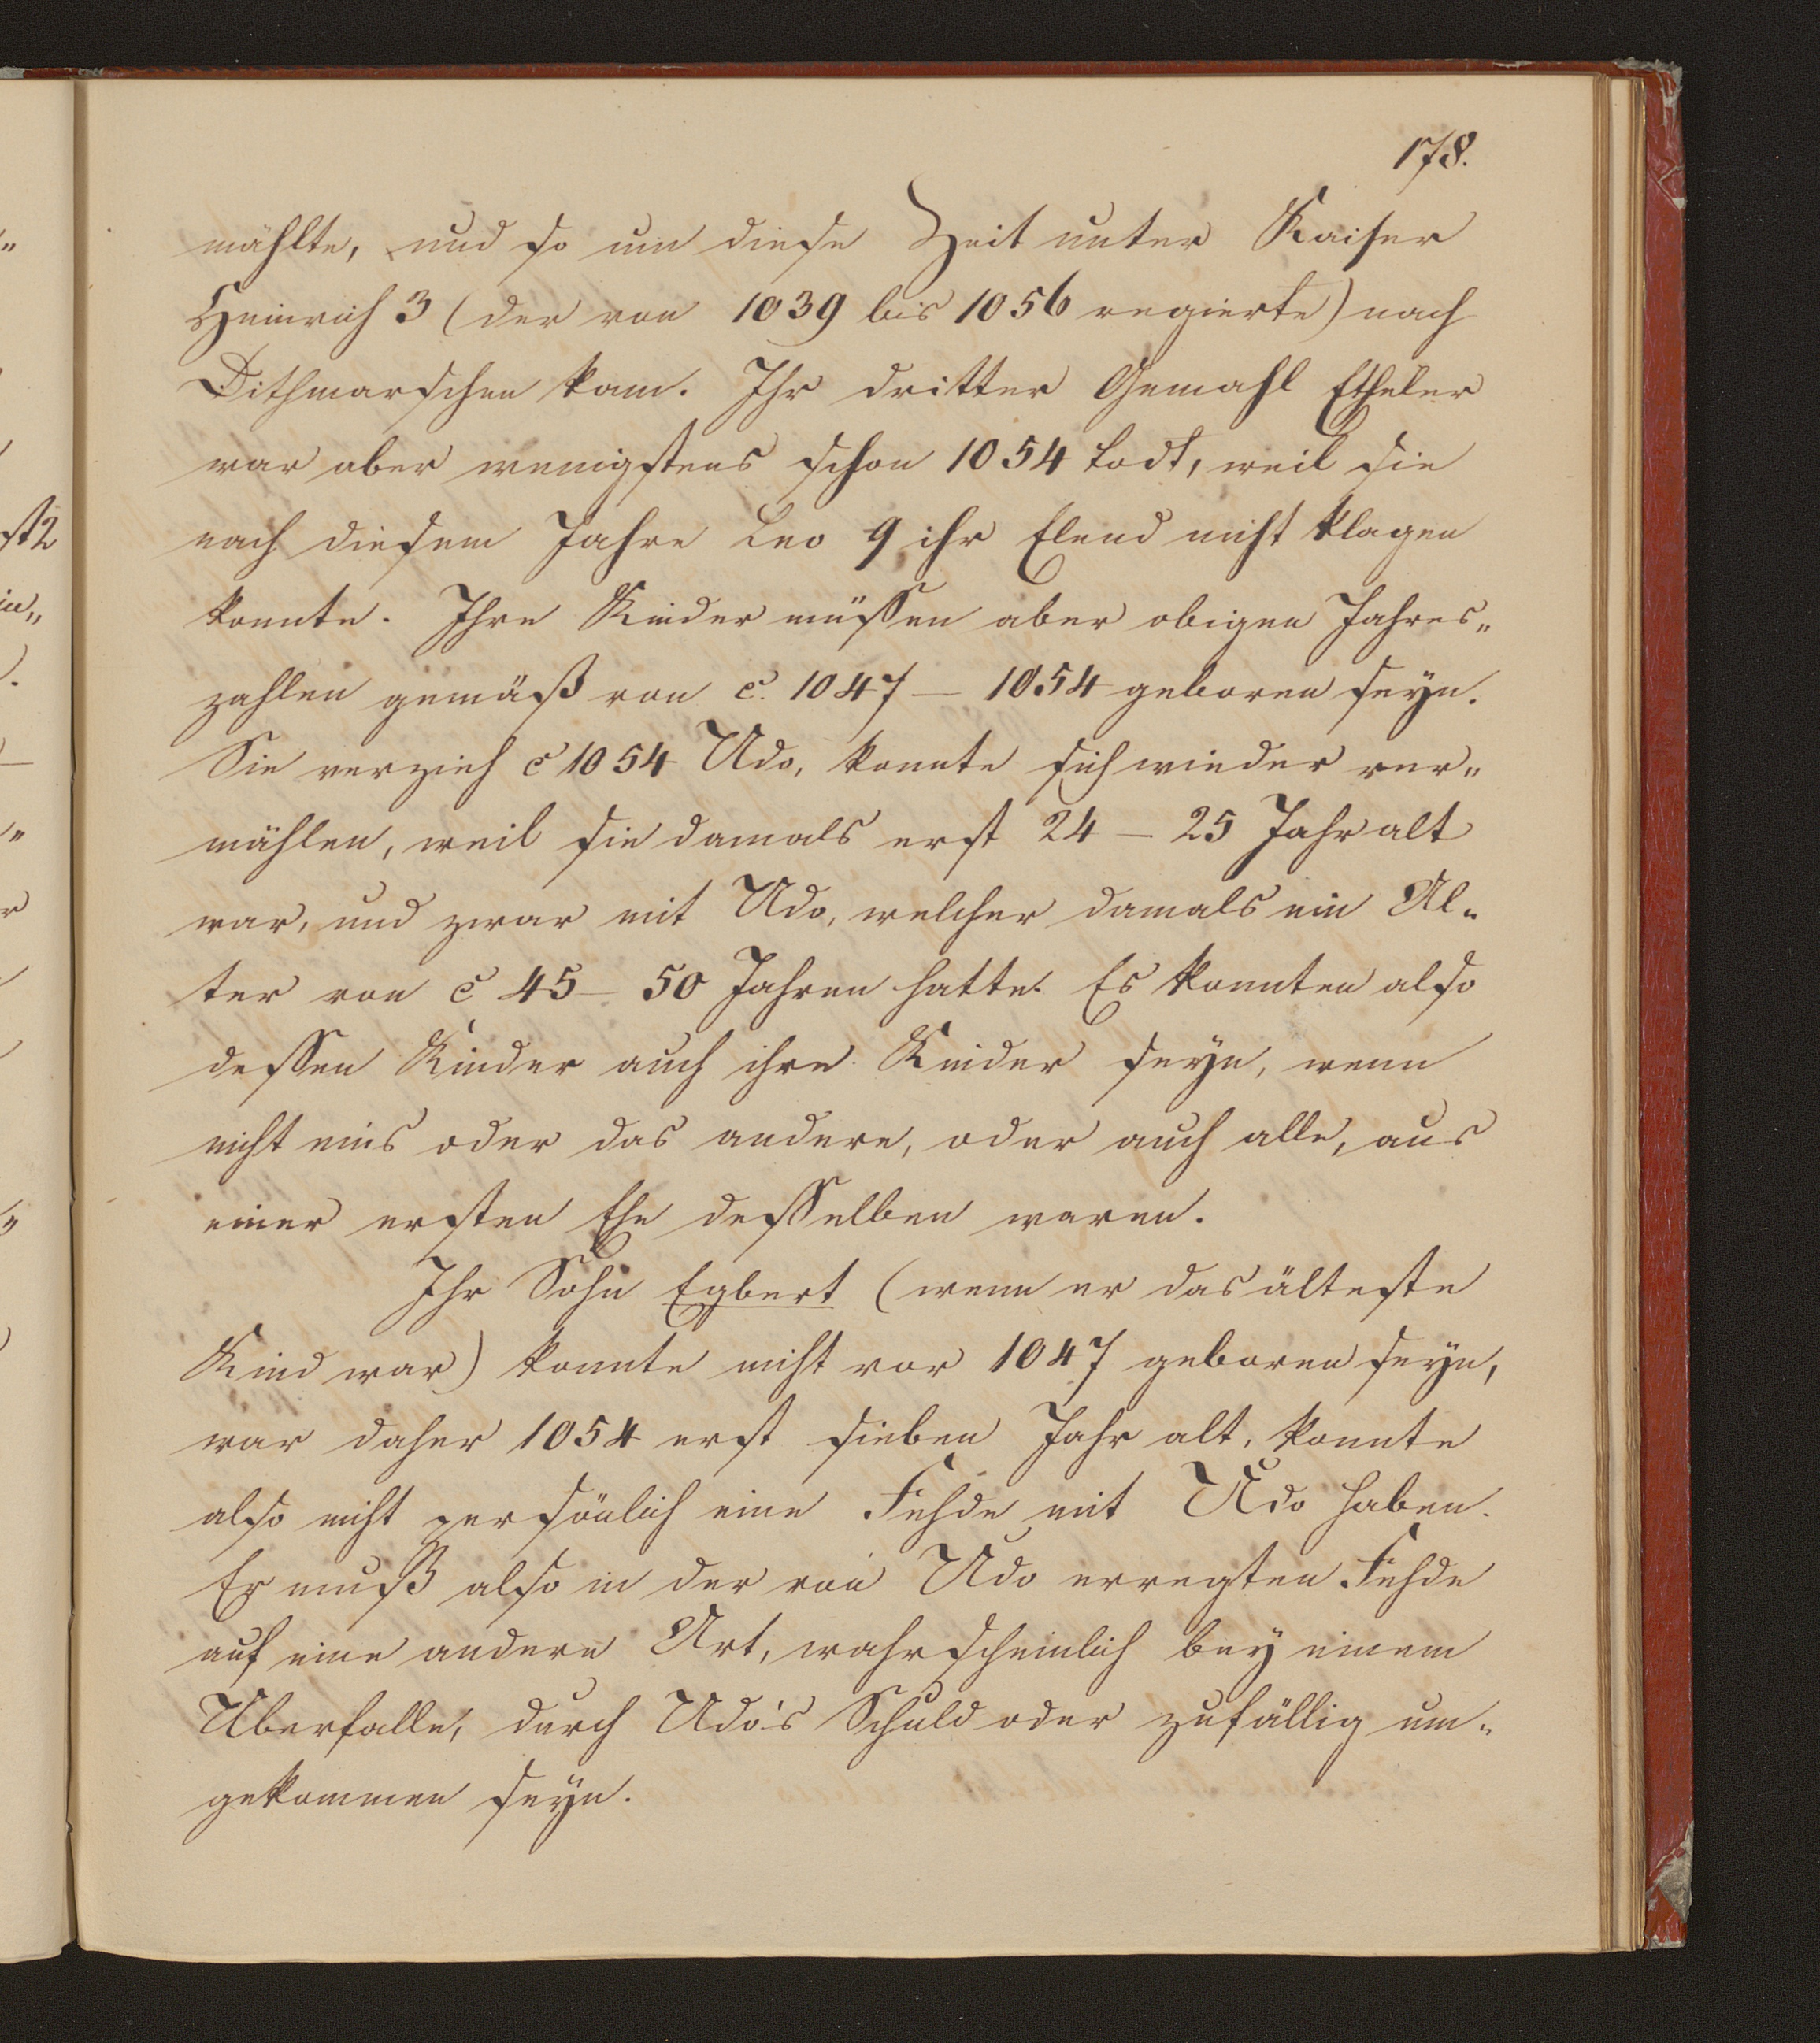 178.
mählte, und so um diese Zeit unter Kaiser
Heinrich 3 (der von 1039 bis 1056 regierte) nach
Dithmarschen kam. Ihr dritter Gemahl Etheler
war aber wenigstens schon 1054 todt, weil sie
nach diesem Jahre Leo 9 ihr Elend nicht klagen
konnte. Ihre Kinder müssen aber obigen Jahres„
zahlen gemäß von c. 1047 — 1054 geboren seyn.
Sie verzieh c 1054 Udo, konnte sich wieder ver„
mählen, weil sie damals erst 24 — 25 Jahr alt
war, und zwar mit Udo, welcher damals ein Al„
ter von c 45 — 50 Jahren hatte. Es konnten also
dessen Kinder auch ihre Kinder seyn, wenn
nicht eins oder das andere, oder auch alle, aus
einer ersten Ehe desselben waren.
Ihr Sohn Egbert (wenn er das älteste
Kind war) konnte nicht vor 1047 geboren seyn,
war daher 1054 erst sieben Jahr alt, konnte
also nicht persönlich eine Fehde mit Udo haben.
Er muß also in der von Udo erregten Fehde
auf eine andere Art, wahrscheinlich bey einem
Überfalle, durch Udo's Schuld oder zufällig um„
gekommen seyn.